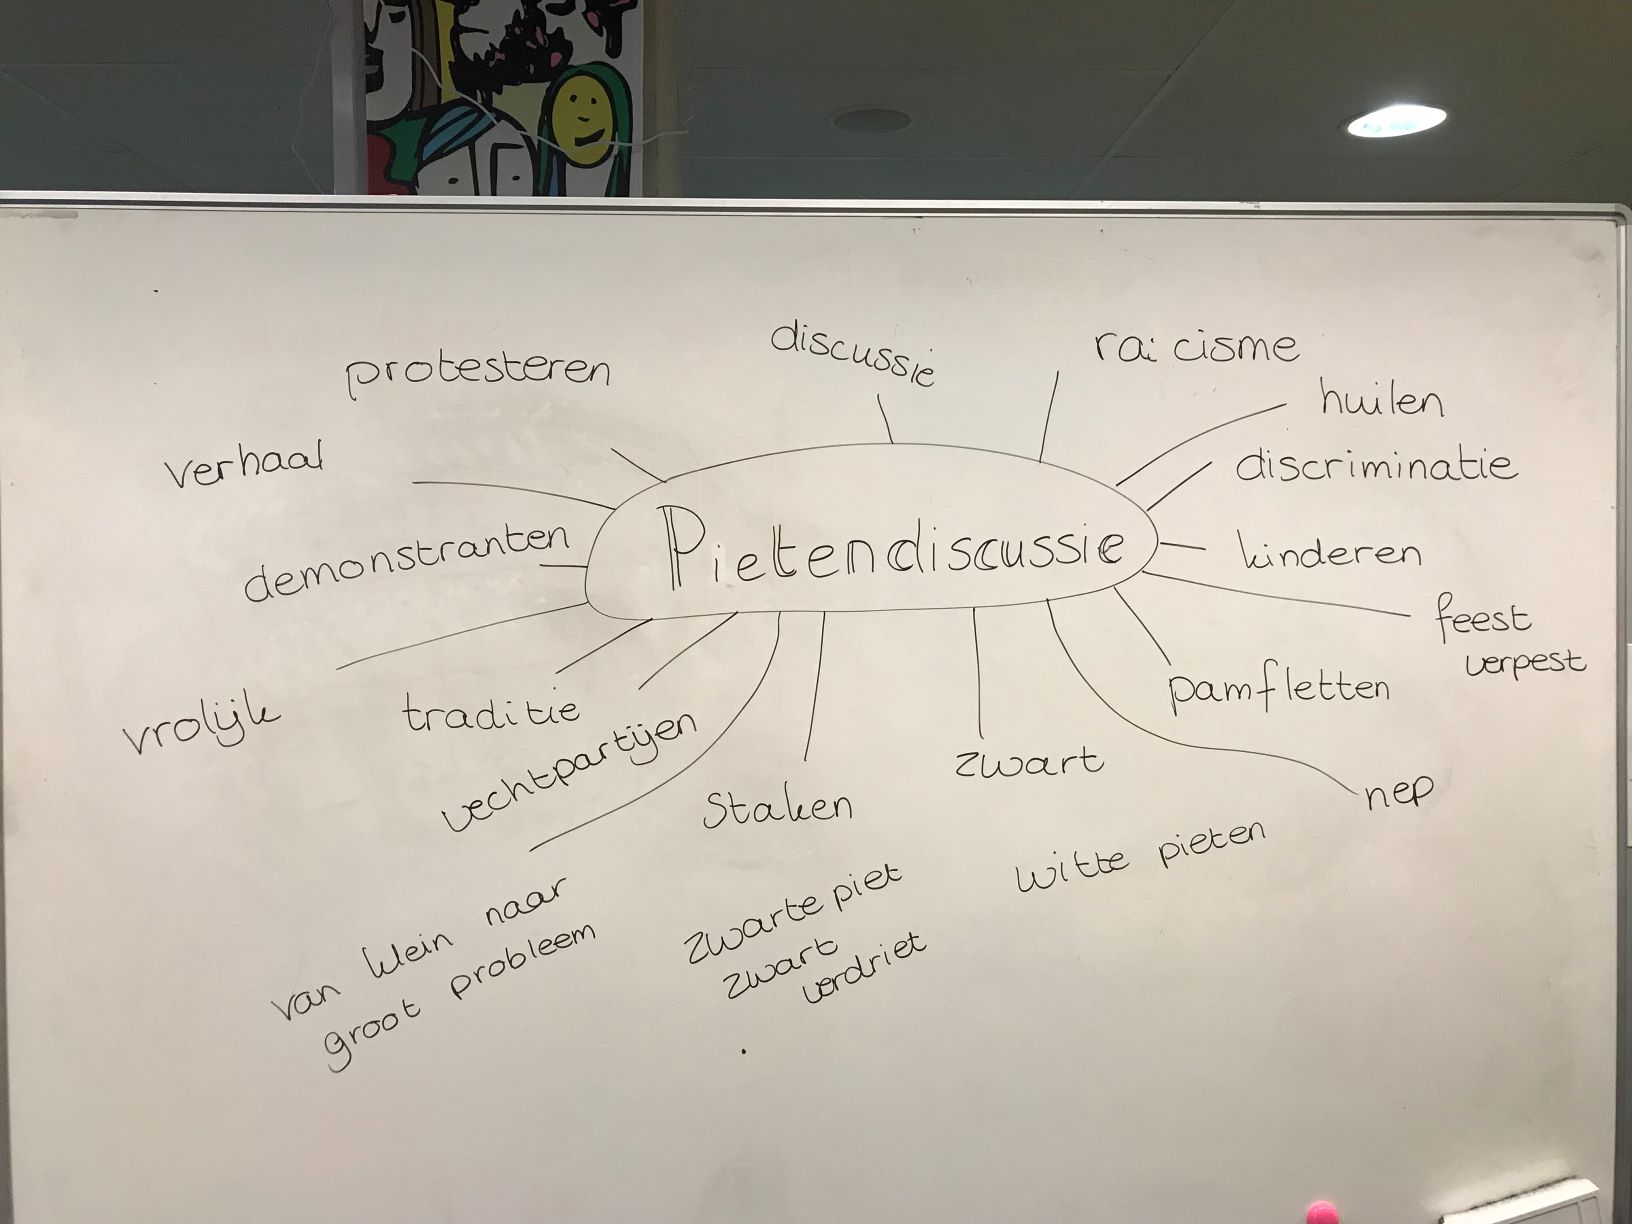 discussie
ra: cisme
protesteren
huilen
verhaal
discriminatie
demonstranten
Pietendiscussie
kinderen
feest
verpest
vrolijk
traditie
pamfletten
vechtpartijen
zwart
nep
Staken
witte pieten
van klein naar
groot probleem
zwarte piet
zwart
verdriet